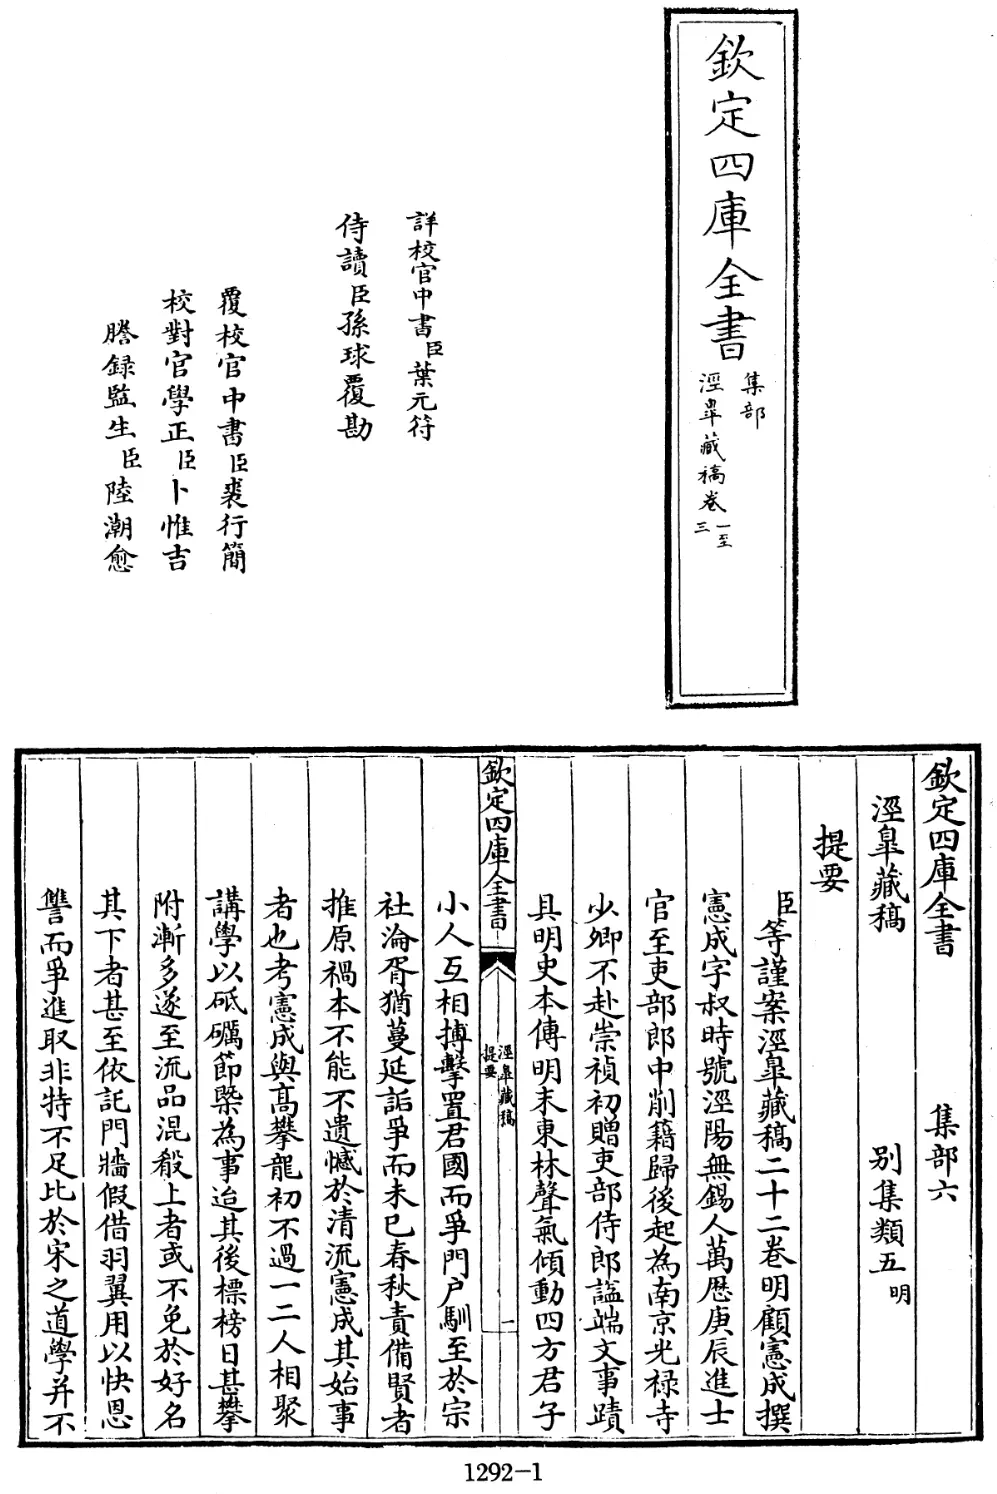 欽定四庫全書
集部
涇臯藏稿卷一至三
詳校官中書臣葉元符
侍讀臣孫球覆勘
覆校官中書臣裘行簡
校對官學正臣卜惟吉
謄錄監生臣陸潮愈
欽定四庫全書 集部六
涇臯藏稿 别集類五明
提要
臣等謹案涇臯藏稿二十二卷明顧憲成撰
憲成字叔時號涇陽無錫人萬歴庚辰進士
官至吏部郎中削籍歸後起為南京光禄寺
少卿不赴崇禎初贈吏部侍郎諡端文事蹟
具明史本傳明末東林聲氣傾動四方君子
欽定四庫全書
涇臯藏稿
提要
一
小人互相搏擊置君國而爭門户馴至於宗
社淪胥猶蔓延詬爭而未已春秋責備賢者
推原禍本不能不遺憾於清流憲成其始事
者也考憲成與高攀龍初不過一二人相聚
講學以砥礪節槩為事迨其後標榜日甚攀
附漸多遂至流品混殽上者或不免於好名
其下者甚至依託門牆假借羽翼用以快恩
讐而爭進取非特不足比於宋之道學并不
1292-1